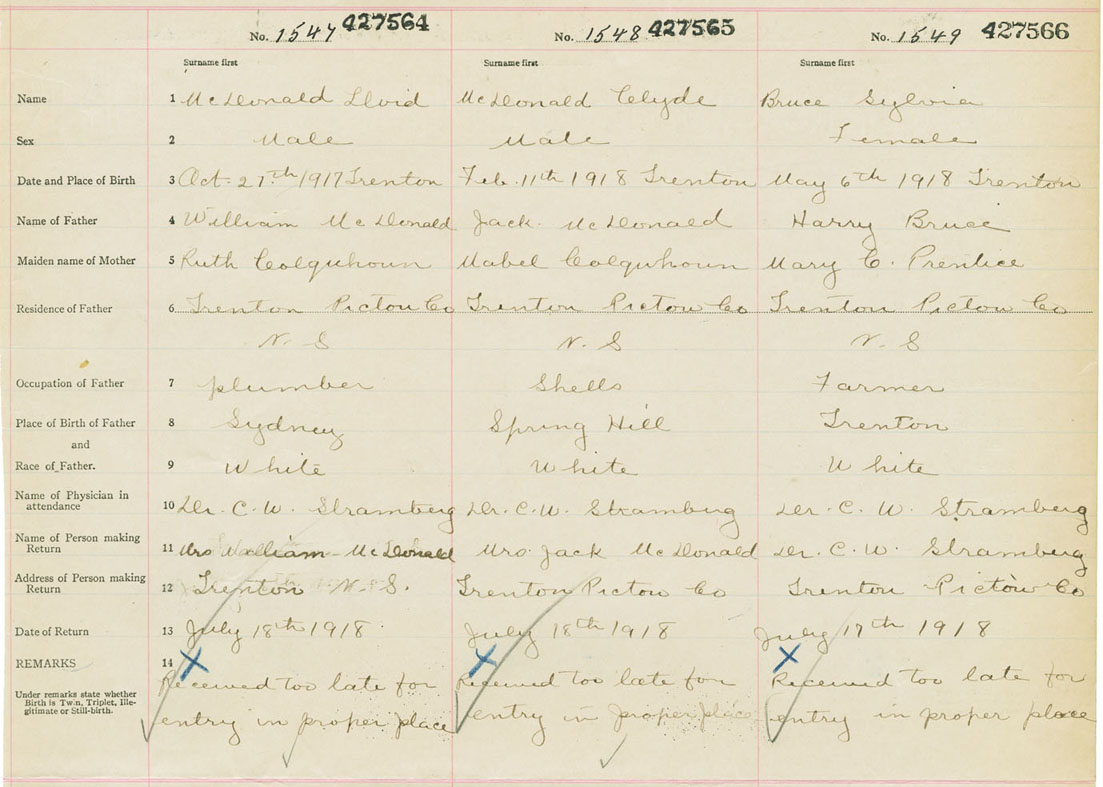 No. 1547 427564 No. 1548 427565 No. 1549 427566
Surname first Surname first Surname first
Name 1 McDonald Lloid McDonald Clyde Bruce Sylvia
Sex 2 Male Male Female
Date and Place of Birth 3 Oct. 27th 1917 Trenton Feb. 11th 1918 Trenton May 6th 1918 Trenton
Name of Father 4 William McDonald Jack McDonald Harry Bruce
Maiden name of Mother 5 Ruth Colquhoun Mabel Colquhoun Mary C. Prentice
Residence of Father 6 Trenton Pictou Co Trenton Pictou Co Trenton Pictou Co
N. S N. S N. S
Occupation of Father 7 plumber Shells Farmer
Place of Birth of Father 8 Sydney Spring Hill Trenton
and
Race of Father. 9 White White White
Name of Physician in
attendance 10 Dr. C. W. Stramberg Dr. C. W. Stramberg Dr. C. W. Stramberg
Name of Person making
Return 11 Mrs William McDonald Mrs. Jack McDonald Dr. C. W. Stramberg
Address of Person making
Return 12 Trenton N. S. Trenton Pictou Co Trenton Pictou Co
Date of Return 13 July 18th 1918 July 18th 1918 July 17th 1918
REMARKS 14 X X X
Received too late for Received too late for Received too late for
Under remarks state whether
Birth is Twin, Triplet, Ille-
gitimate or Still-birth.
entry in proper place entry in proper place entry in proper place